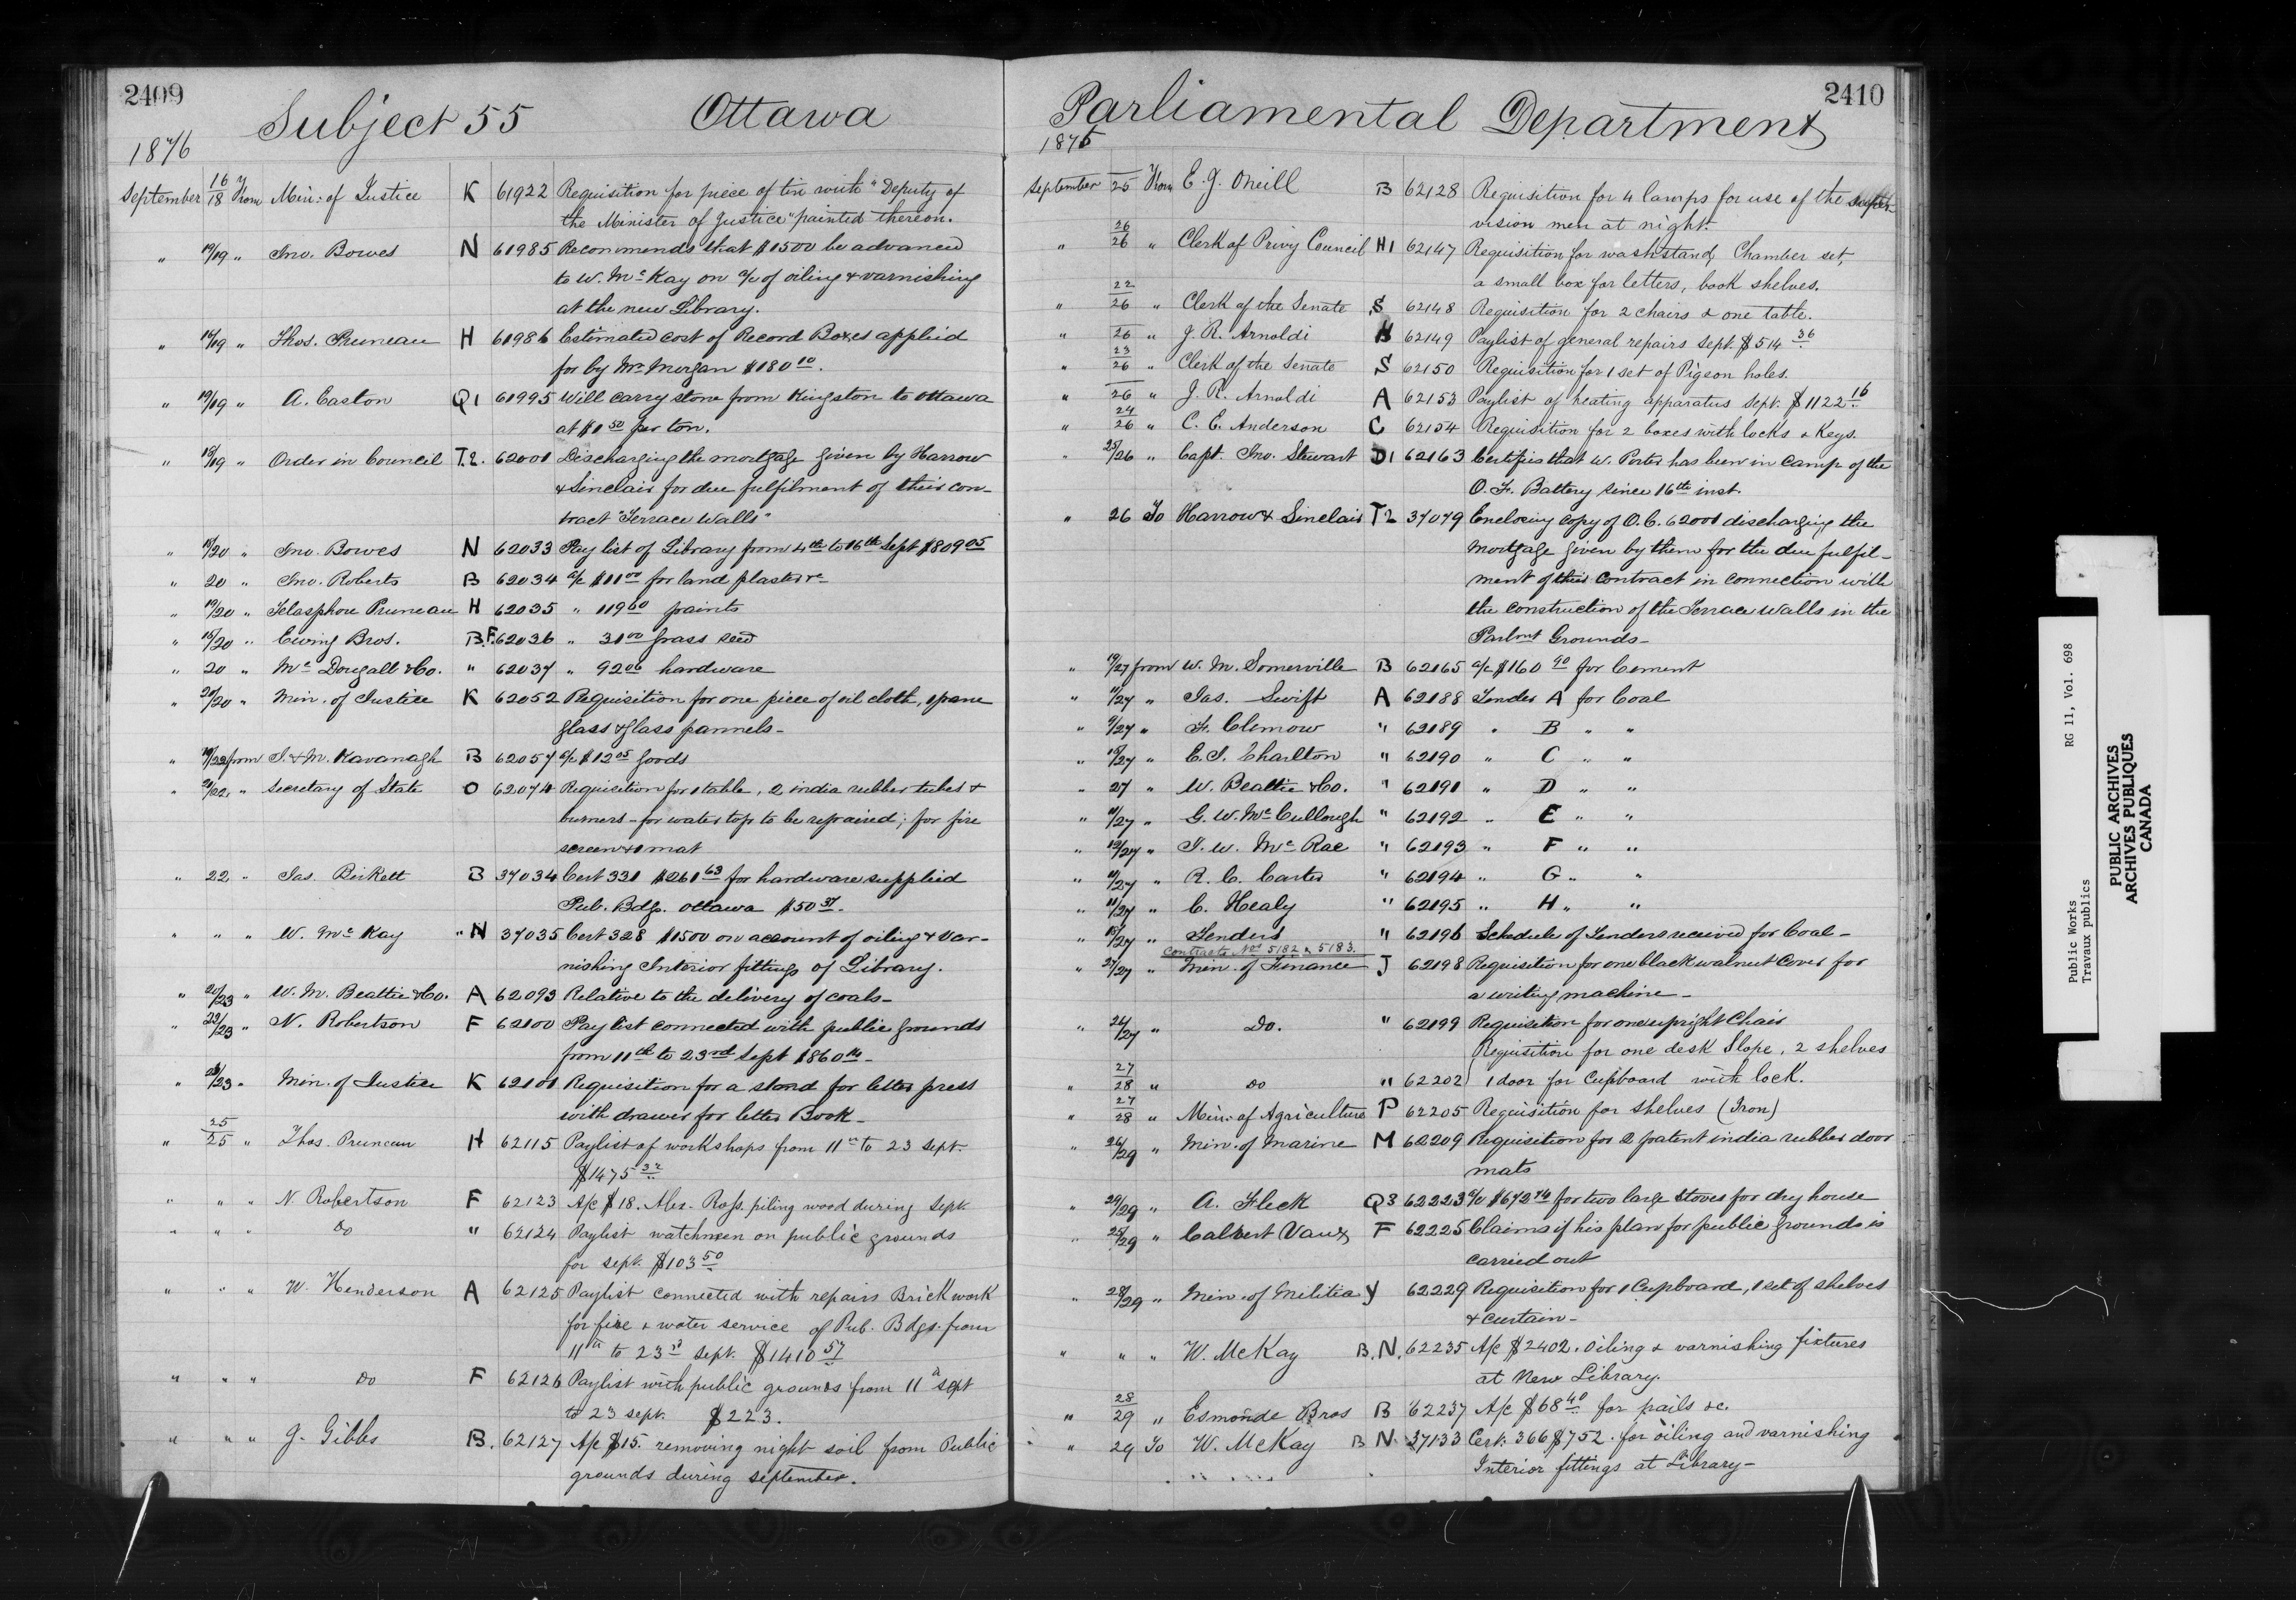 2409
Subject 55 Ottawa
1876
September 16/18 From Min: of Justice K 61922 Requisition for piece of tin with "Deputy of
the Minister of Justice" painted thereon.
" 19/19 " Jno. Bowes N 61985 Recommends that $1500 be advanced
to W. McKay on a/c of oiling & varnishing
at the new Library.
" /19 " Thos. Pruneau H 61986 Estimated cost of Record Boxes applied
for by Mr. Morgan $180 10.
" 19/19 " A. Easton Q1 61995 Will carry stone from Kingston to Ottawa
at $1 50 per ton.
" /19 " Order in Council T.2. 62001 Discharging the mortgage given by Harrow
& Sinclair for due fulfilment of their con-
tract "Terrace Walls"
" /20 " Jno. Bowes N 62033 Pay list of Library from 4th to 16th Sept $809 05
" 20 " Jno. Roberts B 62034 a/c $11 00 for land plaster &c
" 19/20 " Telasphore Pruneau H 62035 " 119 60 paints
" /20 " Ewing Bros. B.F. 62036 " 31 00 grass seed
" 20 " McDougall & Co. " 62037 " 92 06 hardware
" 20/20 " Min. of Justice K 62052 Requisition for one piece of oil cloth, 1 pane
glass & glass pannels-
" /22 from J. & M. Kavanagh B 62057 a/c $12 05 goods
" 21/22 " Secretary of State O 62074 Requisition for 1 table, 2 india rubber tubes &
burners - for water tap to be repaired; for fire
screen & 1 mat
" 22 " Jas. Birkett B 37034 Cert 331 $261 63 for hardware supplied
Pub. Bdgs. Ottawa $50 37.
" " " W. McKay " N 37035 Cert 328 $1500 on account of oiling & var-
nishing Interior fittings of Library.
" 20/23 " W. M. Beattie & Co. A 62093 Relative to the delivery of coals-
" 23/23 " N. Robertson F 62100 Pay list connected with public grounds
from 11th to 23rd Sept $860 14-
" /23 " Min. of Justice K 62101 Requisition for a stand for letter press
with drawer for letter Book-
" 25/25 " Thos. Pruneau H 62115 Paylist of workshops from 11th to 23 Sept.
$1475 32
" " " N. Robertson F 62123 A/c $18. Alex. Ross. piling wood during Sept.
" " " Do " 62124 Paylist watchmen on public grounds
for Sept. $103 50
" " " W. Henderson A 62125 Paylist connected with repairs Brick work
for fire & water service of Pub. Bdgs. from
11th to 23rd Sept. $1410 57
" " " Do F 62126 Paylist with public grounds from 11th Sept
to 23 Sept. $223.
" " " J. Gibbs B. 62127 A/c $15. removing night soil from Public
grounds during September.
2410
Parliamental Department
1876
September 25 From E. J. Oneill B 62128 Requisition for 4 lamps for use of the super-
vision men at night.
" 26/26 " Clerk of Privy Council H1 62147 Requisition for washstand, Chamber set,
a small box for letters, book shelves.
" 22/26 " Clerk of the Senate S 62148 Requisition for 2 chairs & one table.
" 26 " J. R. Arnoldi H 62149 Paylist of general repairs Sept. $514 36
" 23/26 " Clerk of the Senate S 62150 Requisition for 1 set of Pigeon holes.
" 26 " J. R. Arnoldi A 62153 Paylist of heating apparatus Sept. $1122 16
" 24/26 " C. E. Anderson C 62154 Requisition for 2 boxes with locks & Keys.
" 25/26 " Capt. Jno. Stewart D1 62163 Certifies that W. Porter has been in camp of the
O. F. Battery since 16th inst.
" 26 To Harrow & Sinclair T2 37079 Enclosing copy of O.C. 62001 discharging the
mortgage given by them for the due fulfil-
ment of their contract in connection with
the construction of the Terrace walls in the
Parlmt Grounds-
" 19/27 from W. M. Somerville B 62165 a/c $160 90 for Cement
" 11/27 " Jas. Swift A 62188 Tender A for Coal
" 9/27 " F. Clemow " 62189 " B " "
" /27 " E. J. Charlton " 62190 " C " "
" 27 " W. Beattie & Co. " 62191 " D " "
" 11/27 " G. W. McCullough " 62192 " E " "
" /27 " J. W. McRae " 62193 " F " "
" /27 " R. C. Carter " 62194 " G " "
" 11/27 " C. Healy " 62195 " H " "
" /27 " Tenders " 62196 Schedule of Tenders received for Coal-
Contracts Nos 5182 & 5183.
" 27/27 " Min. of Finance J 62198 Requisition for one black walnut Cover for
a writing machine-
" 26/27 " Do. " 62199 Requisition for one upright Chair
Requisition for one desk slope, 2 shelves
" 27/28 " Do " 62202 1 door for Cupboard with lock.
" 27/28 " Min: of Agriculture P 62205 Requisition for shelves (Iron)
" 26/29 " Min. of Marine M 62209 Requisition for 2 patent india rubber door
mats
" 29/29 " A. Fleck Q3 62223 a/c $672 74 for two large stoves for dry house
" /29 " Calvert Vaux F 62225 Claims if his plan for public grounds is
carried out
" 28/29 " Min. of Militia Y 62229 Requisition for 1 Cupboard, 1 set of shelves
& curtain-
" " " W. McKay B.N. 62235 A/c $2402. oiling & varnishing fixtures
at New Library.
" 28/29 " Esmonde Bros B 62237 A/c $68 40 for pails &c.
" 29 To W. McKay B N 37133 Cert. 366 $752. for oiling and varnishing
Interior fittings at Library-
Public Works RG 11, Vol. 698
Travaux publics
PUBLIC ARCHIVES
ARCHIVES PUBLIQUES
CANADA